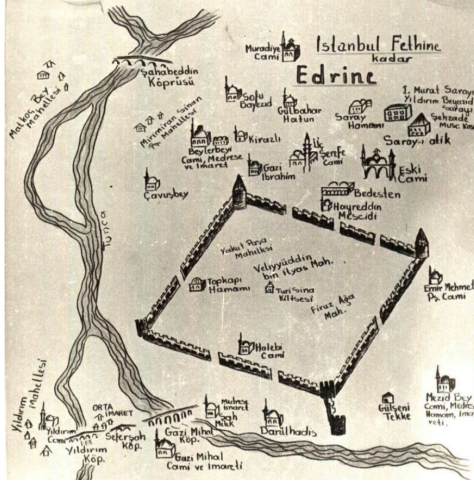 Istanbul Fethine
kadar
Edrine
Muradiye
Cami
Şahabeddin
Köprüsü
Malkoç Bey
Mahallesi
Mirimiran Sinan
Pş. Mahallesi
Sofu
Bayezid
Gülbahar
Hatun
Saray
Hamamı
I. Murat Sarayı
Yıldırım Beyazıd
Sarayı
Şehzade
Musa
Saray-ı atik
Beylerbeyi
Cami, Medrese
ve İmaret
Kirazlı
Gazi
İbrahim
Üç
Şerefe
Cami
Eski
Cami
Çavuşbey
Bedesten
Hayreddin
Mescidi
Tunca
Yakut Paşa
Mahallesi
Veliyyüddin
bin ilyas Mah.
Topkapı
Hamamı
Turi Sina
Kilisesi
Firuz Ağa
Mah.
Emir Mehmet
Pş. Cami
Halebi
Cami
Yıldırım
Mahellesi
ORTA
İMARET
Yıldırım
Cami
Yıldırım
Köp.
Seferşah
Köp.
Gazi Mihal
Köp.
Gazi Mihal
Cami ve İmareti
Medrese
İmaret
Şah
Melik
Darülhadis
Gülşeni
Tekke
Mezid Bey
Cami, Medrese
Hamam, İma
reti.